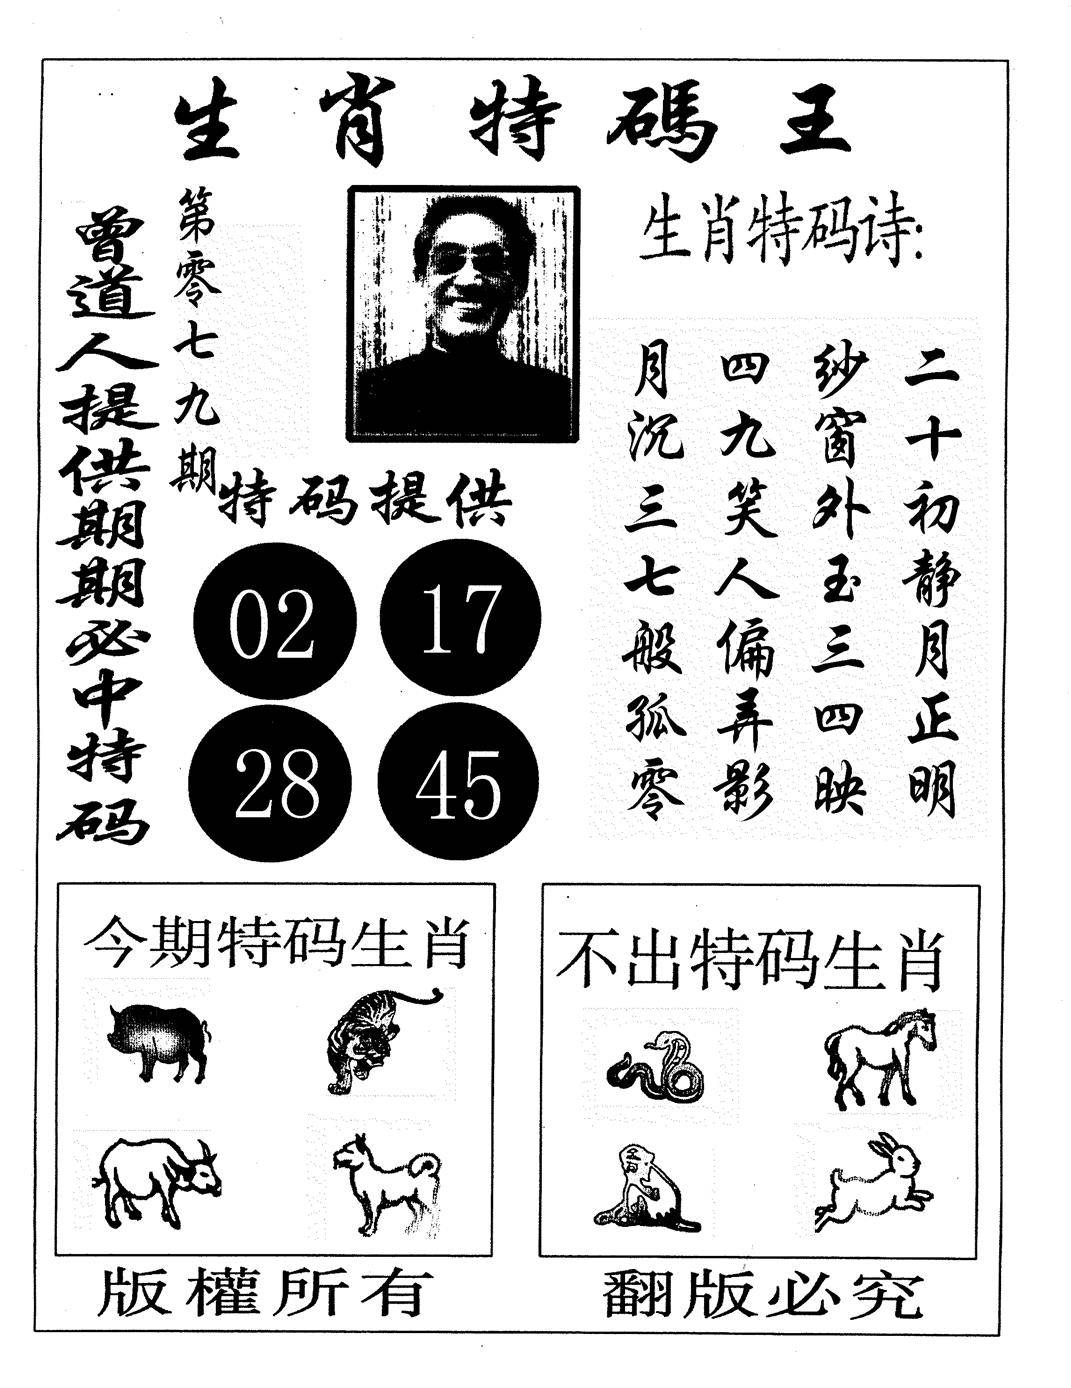 生肖特碼王
曾道人提供期期必中特码
第零七九期
生肖特码诗:
二十初静月正明
纱窗外玉三四映
四九笑人偏弄影
月沉三七般孤零
特码提供
02 17
28 45
今期特码生肖
不出特码生肖
版權所有
翻版必究